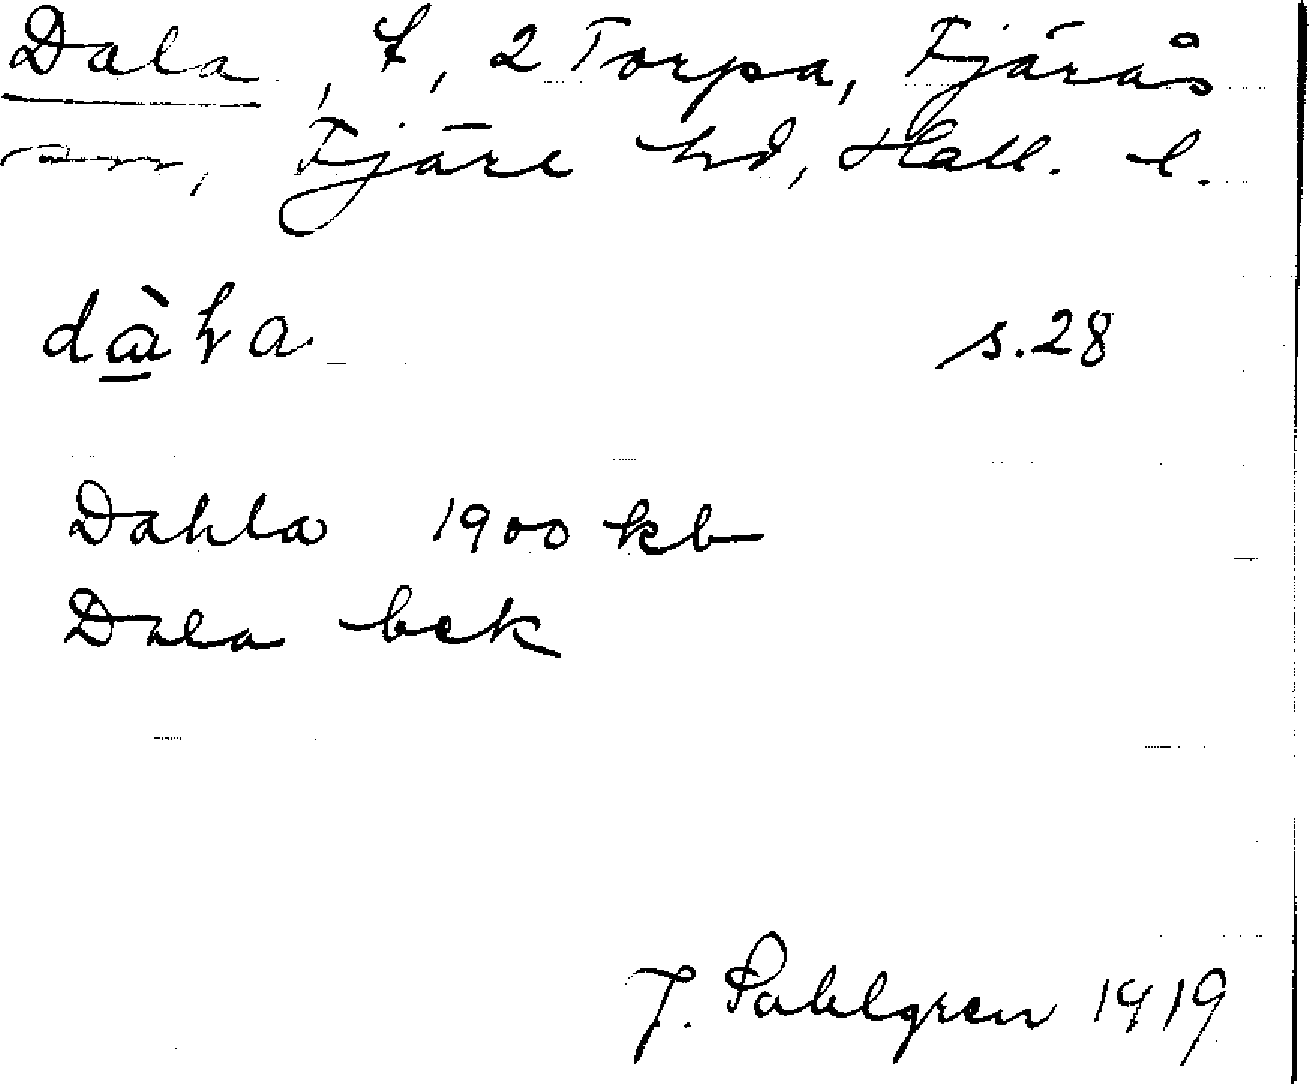 Dala, t, 2 Torpa, Fjärås
sn, Fjäre hd, Hall. l.
s. 28
Dahla 1900 kb
Dala bek
J. Sahlgren 1919